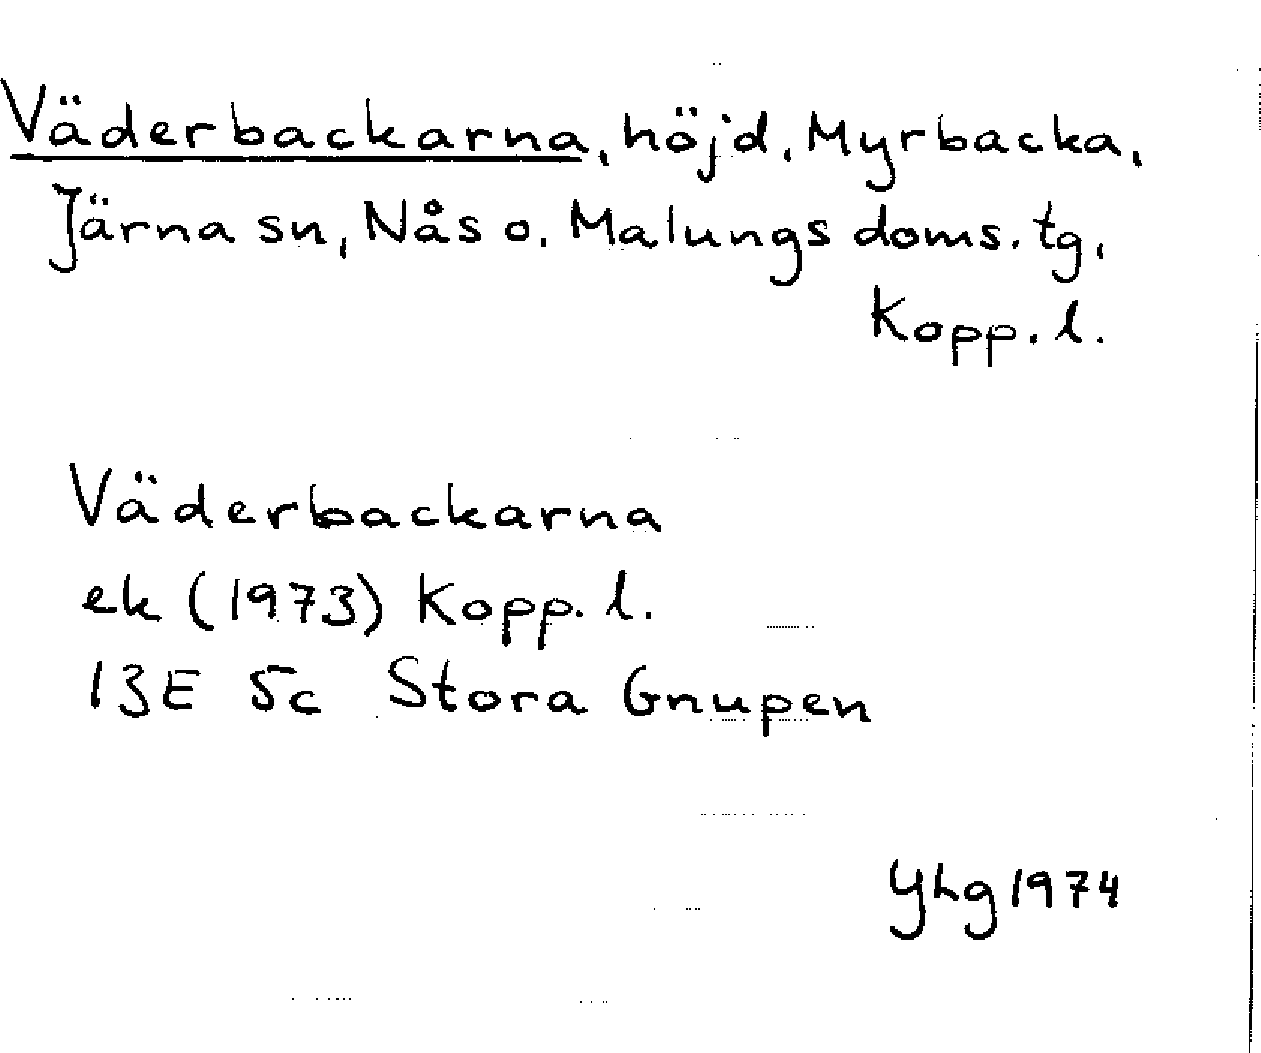 Väderbackarna, höjd, Myrbacka,
Järna sn, Nås o. Malungs doms. tg,
Kopp. l.
Väderbackarna
ek (1973) Kopp. l.
13E 5c Stora Gnupen
YLg 1974